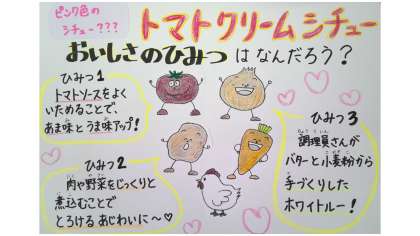 ピンク色の
シチュー???
トマトクリームシチュー
おいしさのひみつはなんだろう?
ひみつ1
トマトソースをよく
いためることで、
あま味とうま味アップ!
ひみつ2
肉や野菜をじっくりと
煮込むことで
とろけるあじわいに〜♡
ひみつ3
調理員さんが
バターと小麦粉から
手づくりした
ホワイトルー!